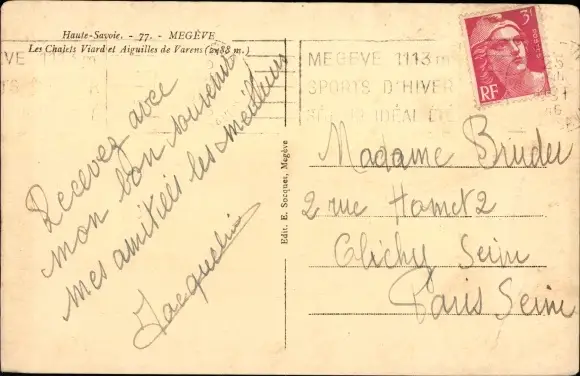 Haute-Savoie. - 77. - MEGÈVE
Les Chalets Viard et Aiguilles de Varens (2488 m.)
MEGEVE 1113 m
SPORTS D'HIVER
SÉJOUR IDÉAL ÉTÉ
3F
RF
Recevez avec
mon bon souvenir
mes amitiés les meilleures
Jacqueline
Edit. E. Socquet, Megève
Madame Bruder
2 rue
Clichy Seine
Paris Seine